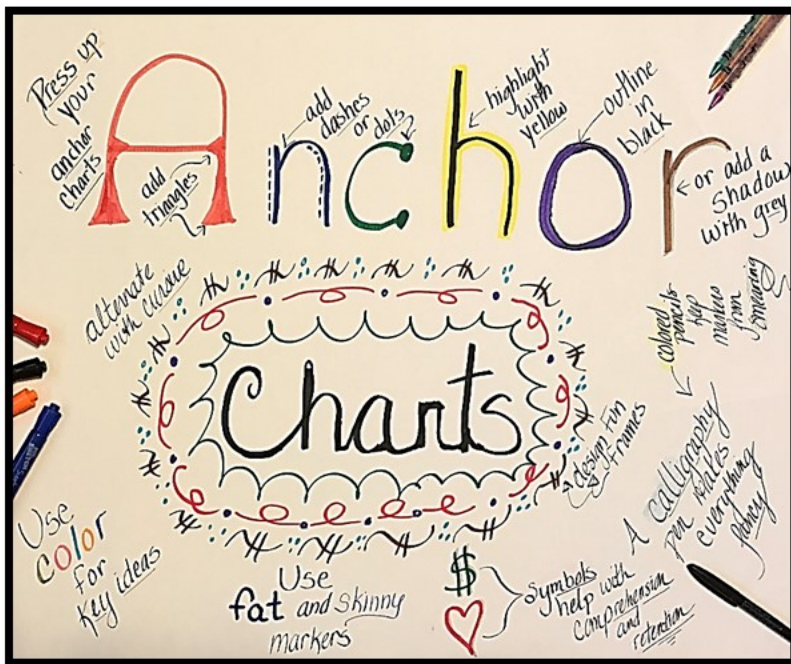 Press up
your
anchor
charts
Anchor
add
triangles
add
dashes
or dots
highlight
with
yellow
outline
in
black
or add a
shadow
with grey
alternate
with cursive
Charts
colored
pencils
keep
markers
from
smearing
design fun
frames
A calligraphy
pen makes
everything
fancy
Use
color
for
key ideas
Use
fat and skinny
markers
$
symbols
help with
comprehension
and
retention